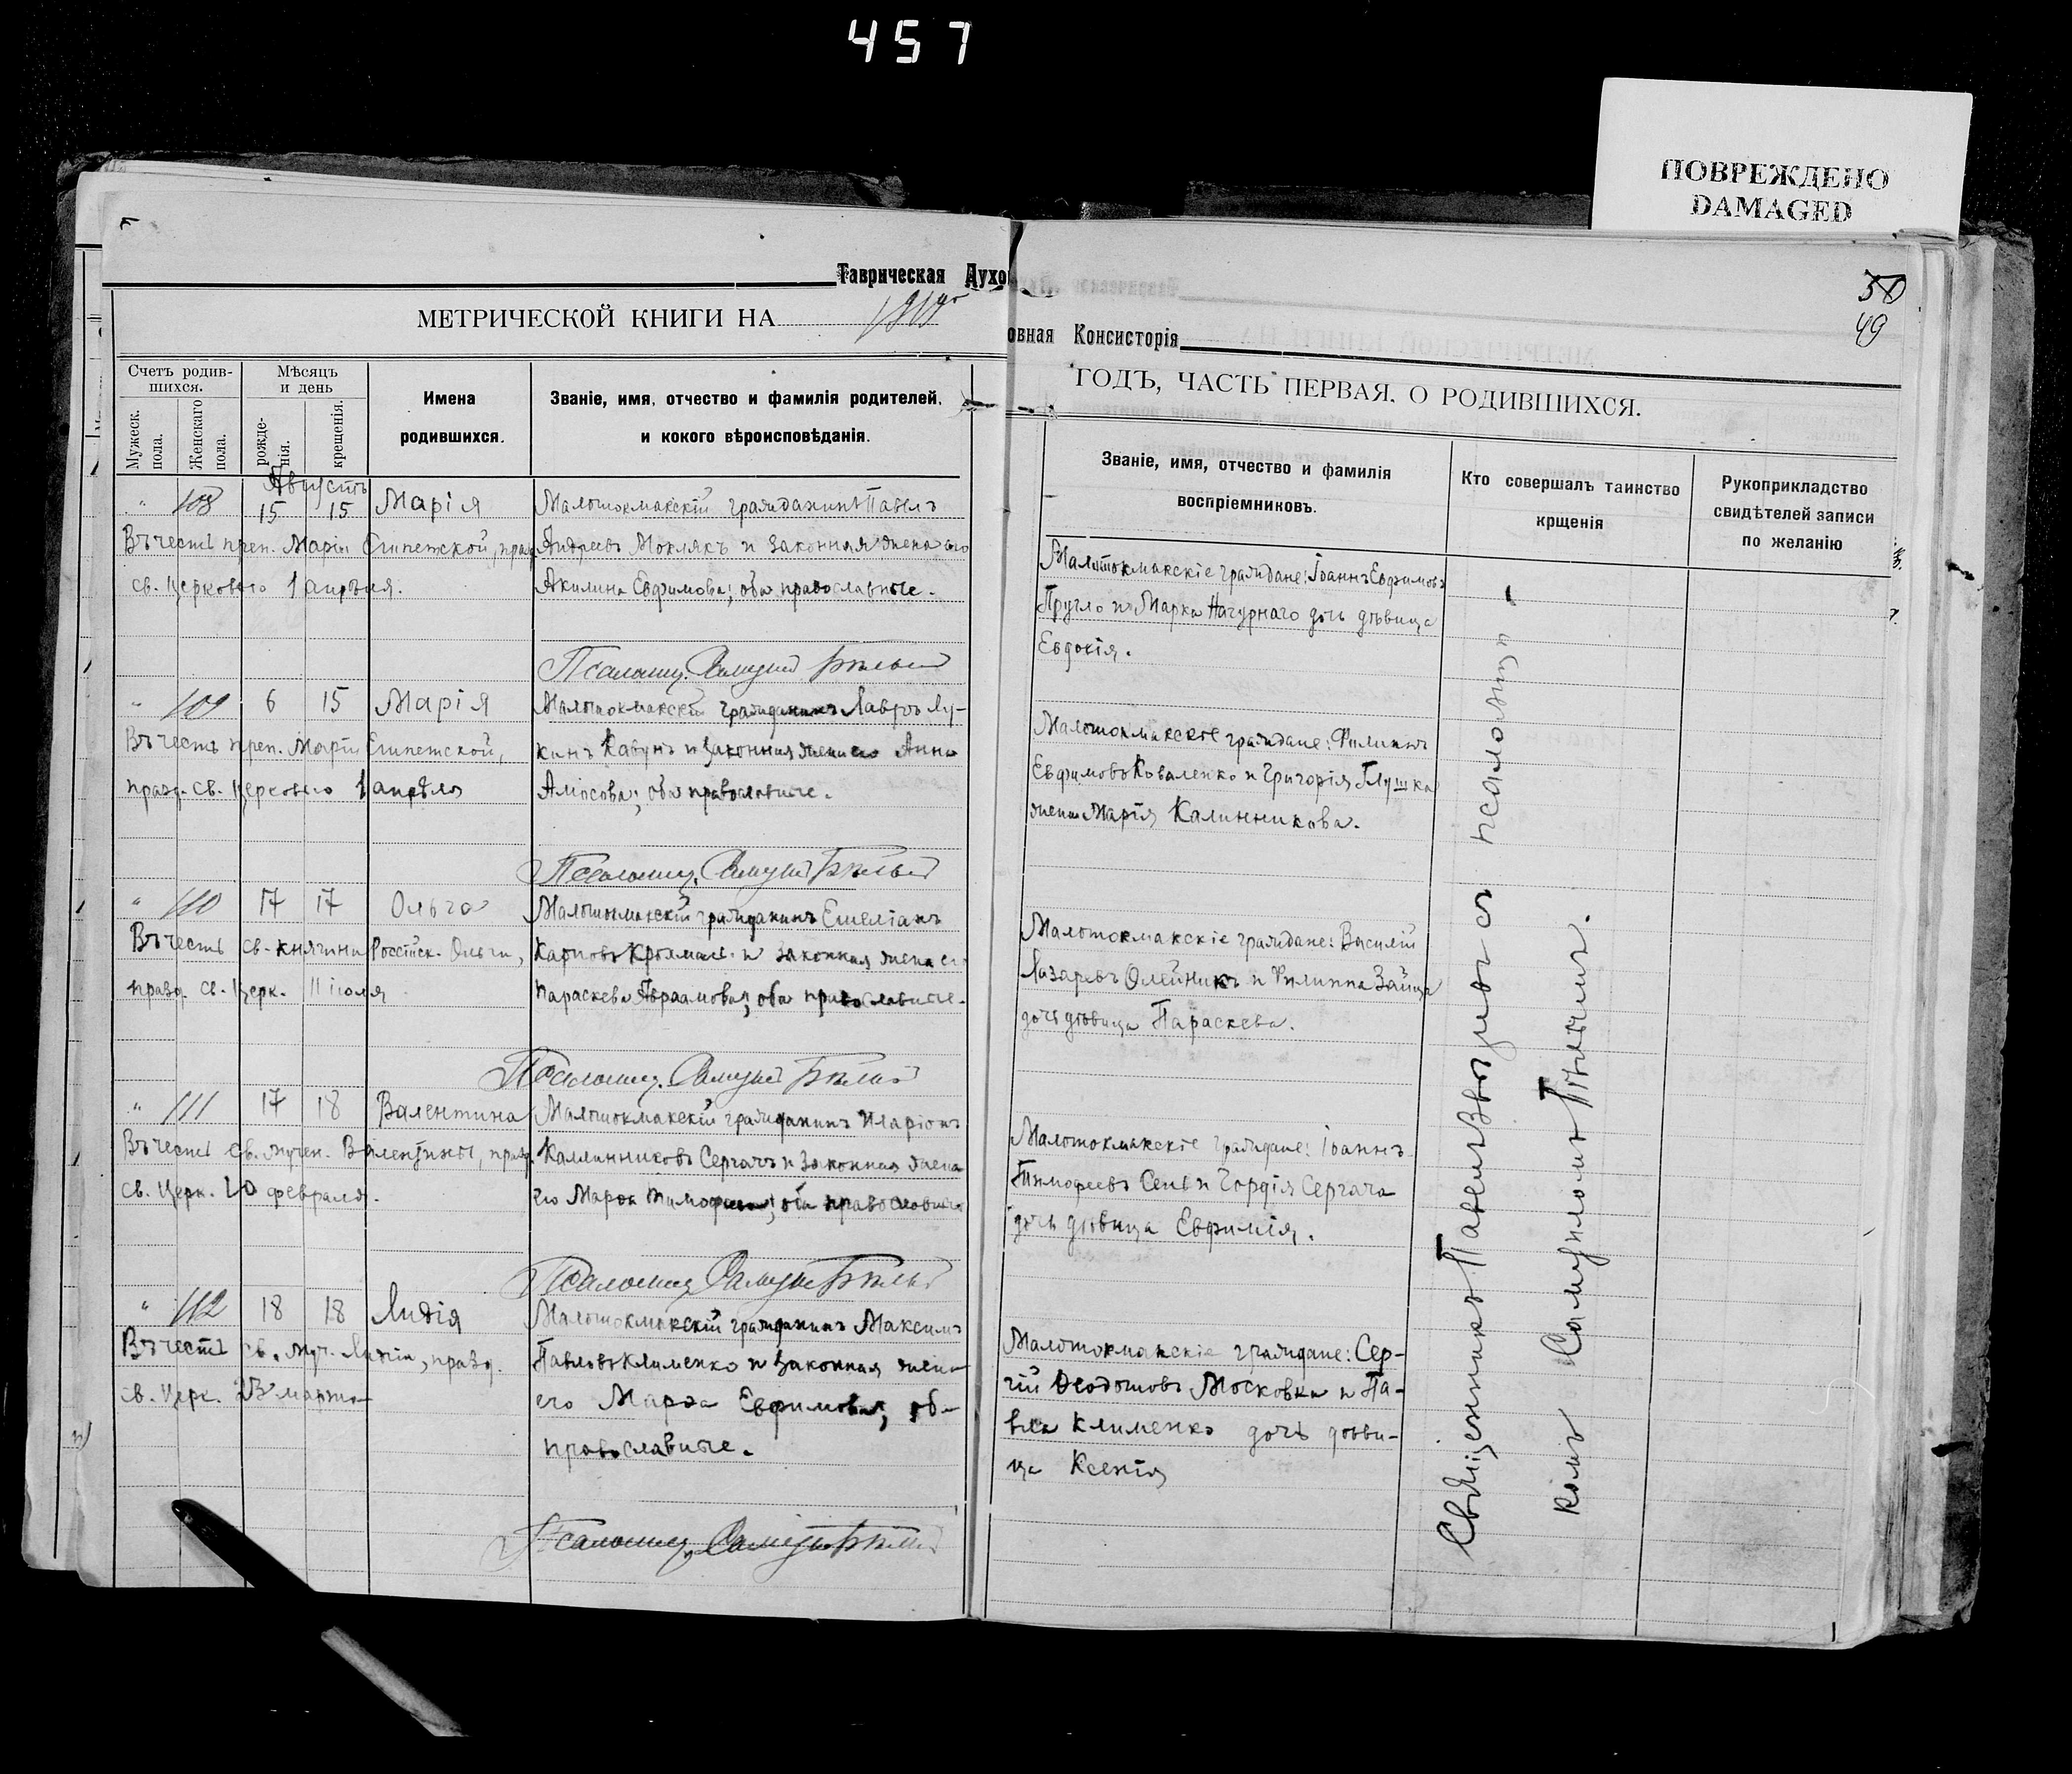 457
ПОВРЕЖДЕНО
DAMAGED
Таврическая Духовная Консисторія
50
49
МЕТРИЧЕСКОЙ КНИГИ НА
ГОДЪ, ЧАСТЬ ПЕРВАЯ, О РОДИВШИХСЯ.
Счетъ родив-
шихся.
Мужеск. пола.
Женскаго пола.
Мѣсяцъ
и день
рожде-
нія.
крещенія.
Имена
родившихся.
Званіе, имя, отчество и фамилія родителей,
и кокого вѣроисповѣданія.
Званіе, имя, отчество и фамилія
воспріемниковъ.
Кто совершалъ таинство
крщенія
Рукоприкладство
свидѣтелей записи
по желанію
Августъ
" 108 15 15 Марія
Въ честь преп. Маріи Египетской, празд.
св. Церковью 1 апрѣля.
Малотокмакскій гражданинъ Павелъ
Андреевъ Моклякъ и законная жена его
Акилина Евфимова; оба православные.
Псаломщ. Самуилъ Бѣлый
Малотокмакскіе граждане: Іоаннъ Евфимовъ
Пругло и Марка Начурнаго дочь дѣвица
Евдокія.
" 109 6 15 Марія
Въ честь преп. Маріи Египетской,
празд. св. Церковью 1 апрѣля
Малотокмакскій гражданинъ Лавръ Лу-
кинъ Кавунъ и законная жена его Анна
Амосова; оба православные.
Псаломщ. Самуилъ Бѣлый
Малотокмакскіе граждане: Филиппъ
Евфимовъ Коваленко и Григорія Глушка
жена Марія Калинникова.
" 110 17 17 Ольга
Въ честь св. княгини Россійск. Ольги,
празд. св. Церк. 11 іюля
Малотокмакскій гражданинъ Емеліанъ
Карповъ и законная жена его
Параскева Авраамова; оба православные.
Псаломщ. Самуилъ Бѣлый
Малотокмакскіе граждане: Василій
Лазаревъ Олейникъ и Филиппа Зайца
дочь дѣвица Параскева.
" 111 17 18 Валентина
Въ честь св. мучен. Валентины, празд.
св. Церк. 10 февраля.
Малотокмакскій гражданинъ Иларіонъ
Каллинниковъ Сергачъ и законная жена
его Марѳа Тимофеева; оба православные
Псаломщ. Самуилъ Бѣлый
Малотокмакскіе граждане: Іоаннъ
Тимофеевъ Сень и Гордія Сергача
дочь дѣвица Евфимія.
" 112 18 18 Лидія
Въ честь св. муч. Лидіи, празд.
св. Церк. 23 марта
Малотокмакскій гражданинъ Максимъ
Павловъ Клименко и законная жена
его Марѳа Евфимова; оба
православные.
Псаломщ. Самуилъ Бѣлый
Малотокмакскіе граждане: Сер-
гій Ѳеодотовъ Московка и Па-
вла Клименко дочь дѣви-
ца Ксенія
Священникъ Павелъ съ псаломщи-
комъ Самуиломъ Бѣлымъ.